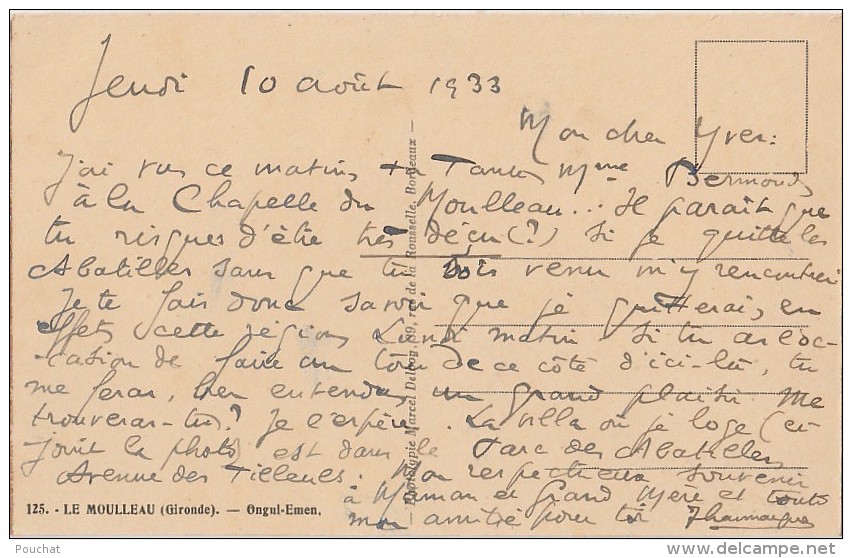 Jeudi 10 août 1933
Mon cher Yves :
J'ai vu ce matin, ta Tante Mme Bermond
à la Chapelle du Moulleau... Il paraît que
tu risques d'être très déçu (?) si je quitte les
Abatilles sans que tu sois venu m'y rencontrer
Je te fais donc savoir que je quitterai, en
effet, cette région Lundi matin. Si tu as l'oc-
-casion de faire un tour de ce côté d'ici-là, tu
me feras, bien entendu, un grand plaisir. Me
trouveras-tu ? Je l'espère. La villa où je loge (ci-
joint la photo) est dans le Parc des Abatilles
Avenue des Tilleuls. Mon respectueux souvenir
à Maman et Grand Mère et toute
mon amitié pour toi
125. - LE MOULLEAU (Gironde). — Ongul-Emen.
— Phototypie Marcel Delboy, 39, rue de la Rousselle, Bordeaux —
Pouchat
delcampe.net